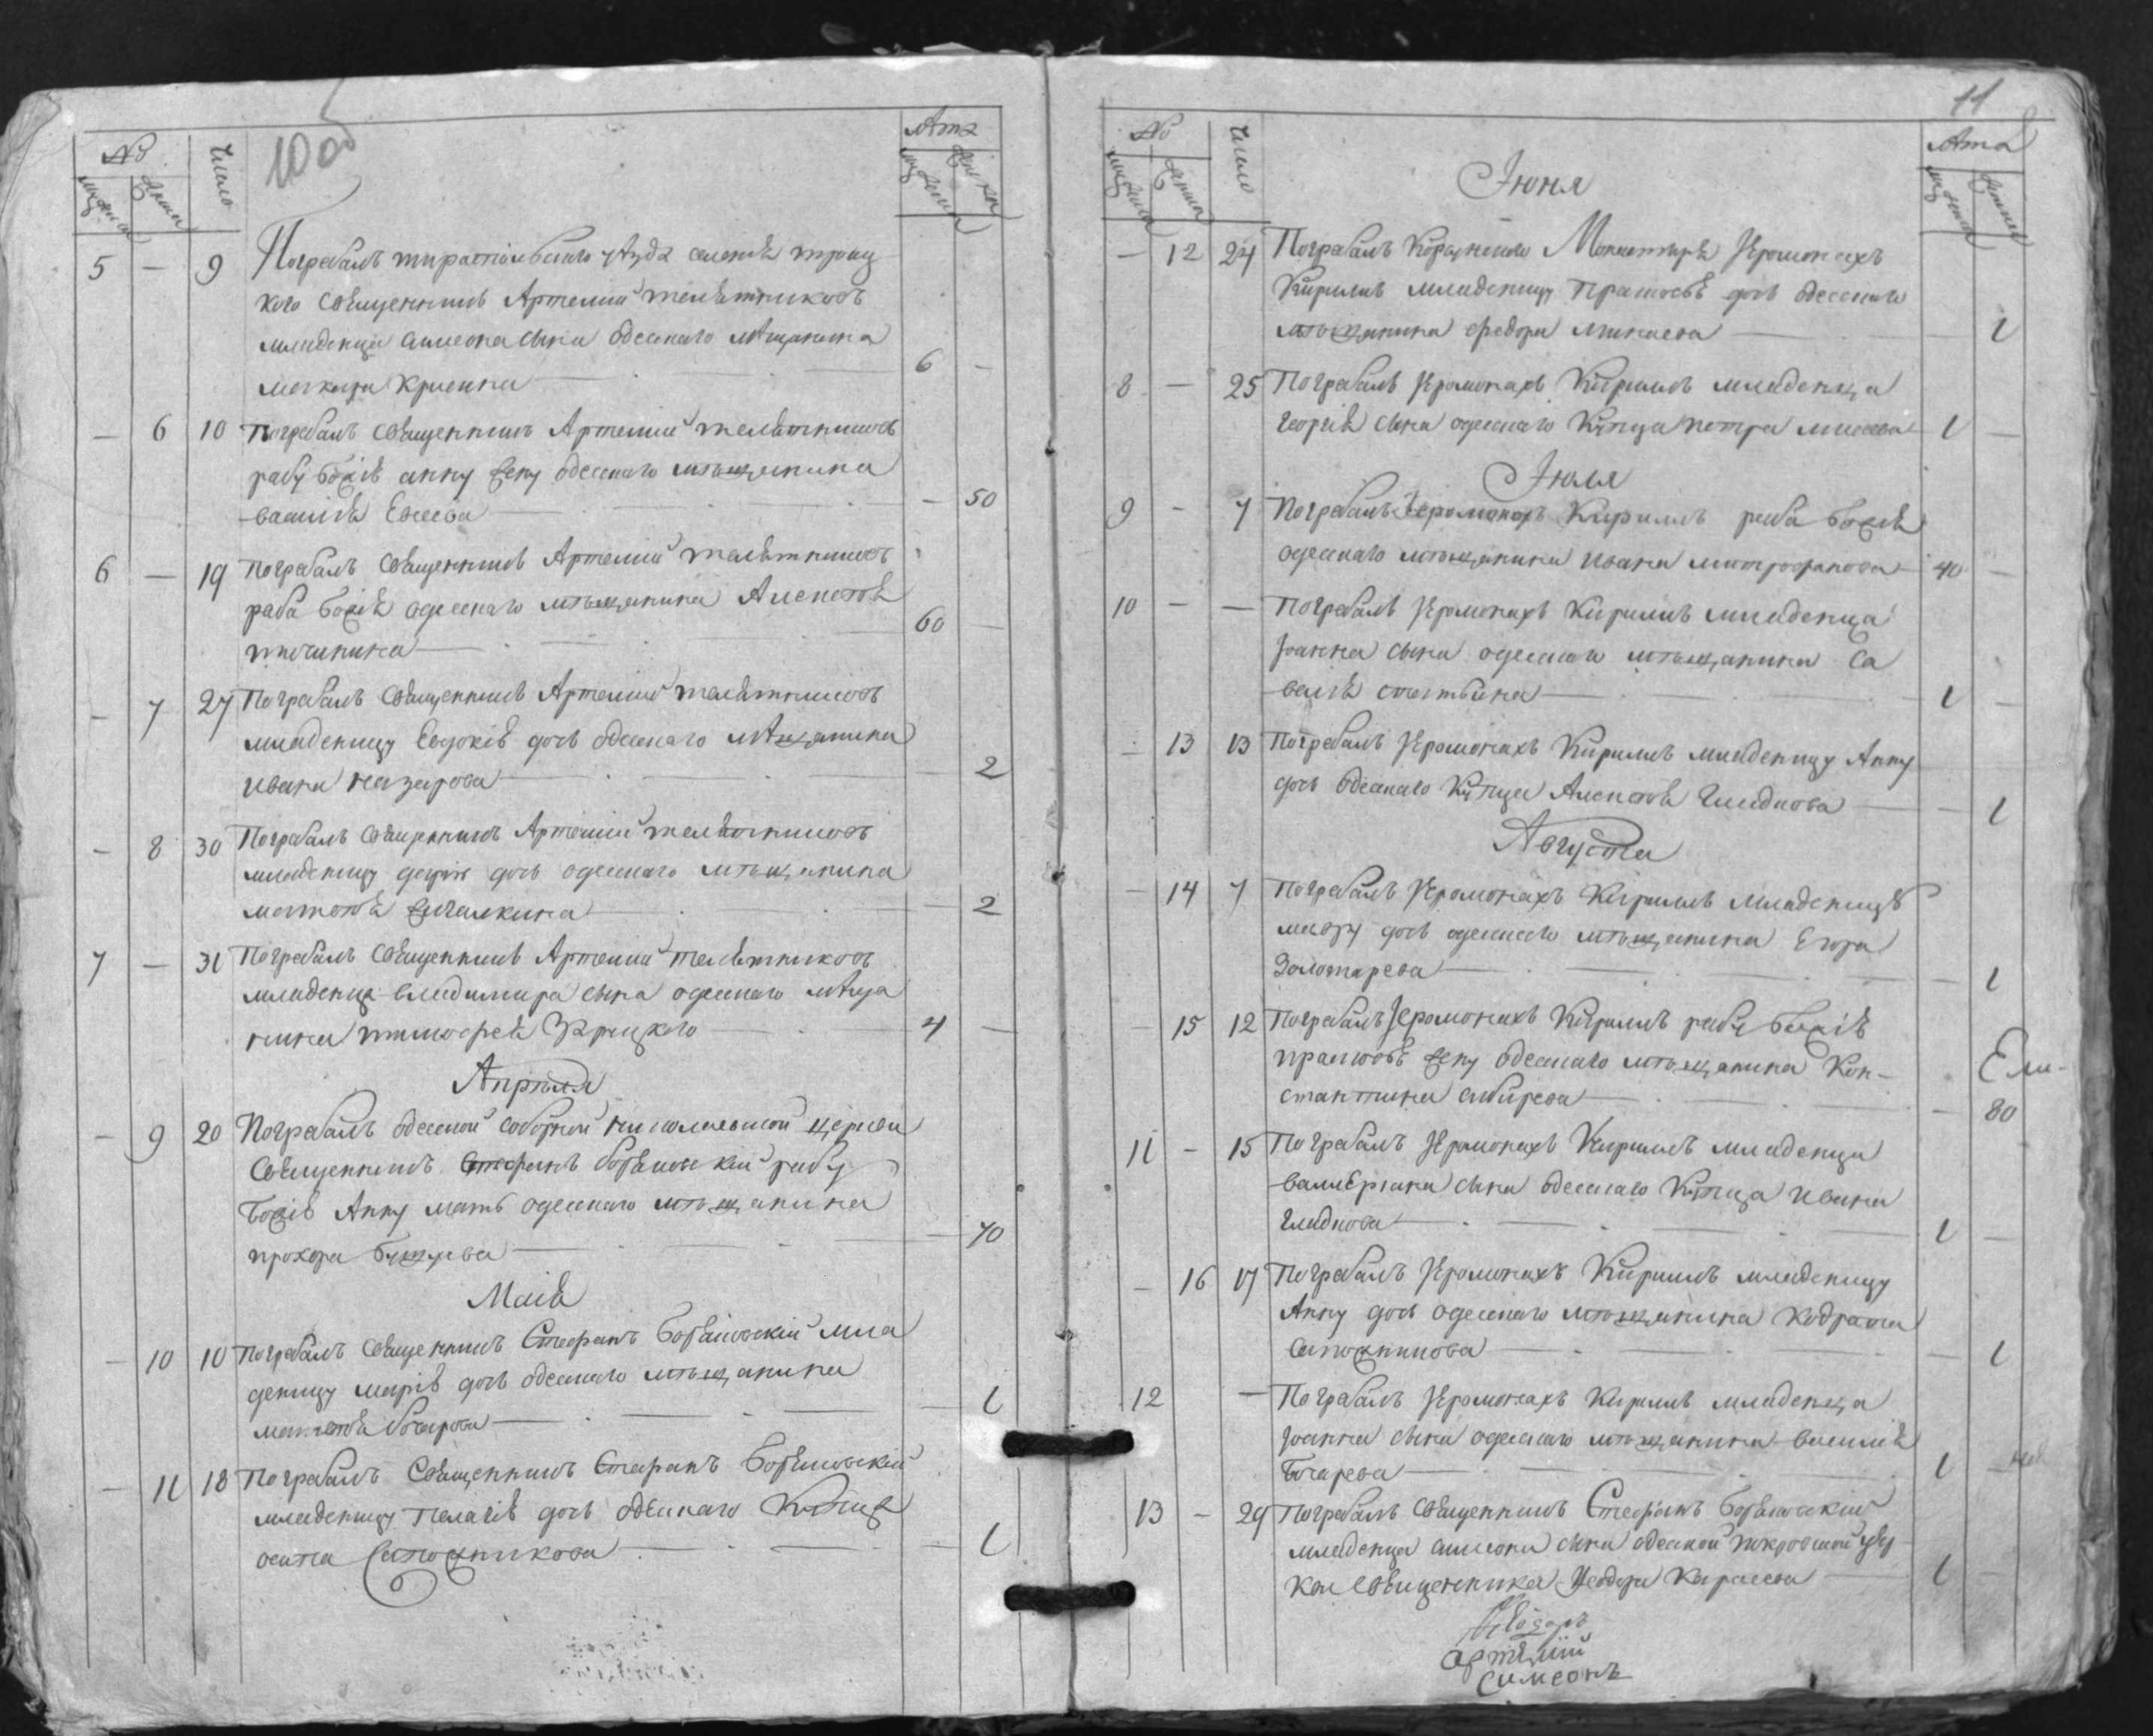 10 об
№ Число Лета
мущины женщины мущины женщины
5 — 9 Погребалъ тираспольскаго уѣзда селенія троиц
кого Священникъ Артемий телѣтниковъ
младенца симеона сына одескаго мѣщанина
6 —
— 6 10 погребалъ Священникъ Артемий телѣтниковъ
рабу божію анну жену одескаго мѣщанина
василія Евсеева — 50
6 — 19 погребалъ Священникъ Артемий телѣтниковъ
раба божія одескаго мѣщанина Алексѣя
60 —
— 7 27 Погребалъ Священникъ Артемий телѣтниковъ
младеницу Евдокію дочь одескаго мѣщанина
Ивана назарова — 2
— 8 30 Погребалъ Священникъ Артемий телѣтниковъ
младеницу дарію дочь одескаго мѣщанина
матвѣя жигалкина — 2
7 — 31 Погребалъ Священникъ Артемий телѣтниковъ
младенца владимира сына одескаго мѣща
нина тимофея 4 —
Апрѣля
— 9 20 Погребалъ одеской соборной николаевской церкви
Священникъ Стефанъ рабу
божію Анну мать одескаго мѣщанина
прохора — 70
Маія
— 10 10 погребалъ Священникъ Стефанъ мла
деницу марію дочь одескаго мѣщанина
матвѣя бочарова — 1
— 11 18 Погребалъ Священникъ Стефанъ
младеницу пелагію дочь одескаго Купца
осипа Сапожникова — 1
11
№ Число Лета
мущины женщины мущины женщины
Іюня
— 12 24 Погребалъ Монастыря Іеромонахъ
Кирилъ младеницу Прасковію дочь одескаго
мѣщанина федора минаева — 1
8 — 25 Погребалъ Іеромонахъ Кирилъ младенца
георгія сына одескаго Купца петра 1 —
Іюля
9 — 7 Погребалъ Іеромонахъ Кирилъ раба божія
одескаго мѣщанина ивана митрофанова 40 —
10 — — Погребалъ Іеромонахъ Кирилъ младенца
Іоанна сына одескаго мѣщанина Са
велія 1 —
— 13 13 Погребалъ Іеромонахъ Кирилъ младеницу Анну
дочь одескаго Купца Алексѣя Гладкова — 1
Августа
— 14 7 Погребалъ Іеромонахъ Кирилъ младеницу
мавру дочь одескаго мѣщанина Егора
Золотарева — 1
— 15 12 Погребалъ Іеромонахъ Кирилъ рабу божію
прасковію жену одескаго мѣщанина Кон-
стантина сибирева — 80
11 — 15 Погребалъ Іеромонахъ Кирилъ младенца
валиеріана сына одескаго Купца Ивана
Гладкова 1 —
— 16 17 Погребалъ Іеромонахъ Кирилъ младеницу
Анну дочь одескаго мѣщанина Кодрата
Сапожникова — 1
12 — Погребалъ Іеромонахъ Кирилъ младенца
Іоанна сына одескаго мѣщанина василія
Бочарева 1 —
13 — 29 Погребалъ Священникъ Стефанъ
младенца симеона сына одеской покровской цер
кви Священника Феодора 1 —
Артемий
Симеонъ